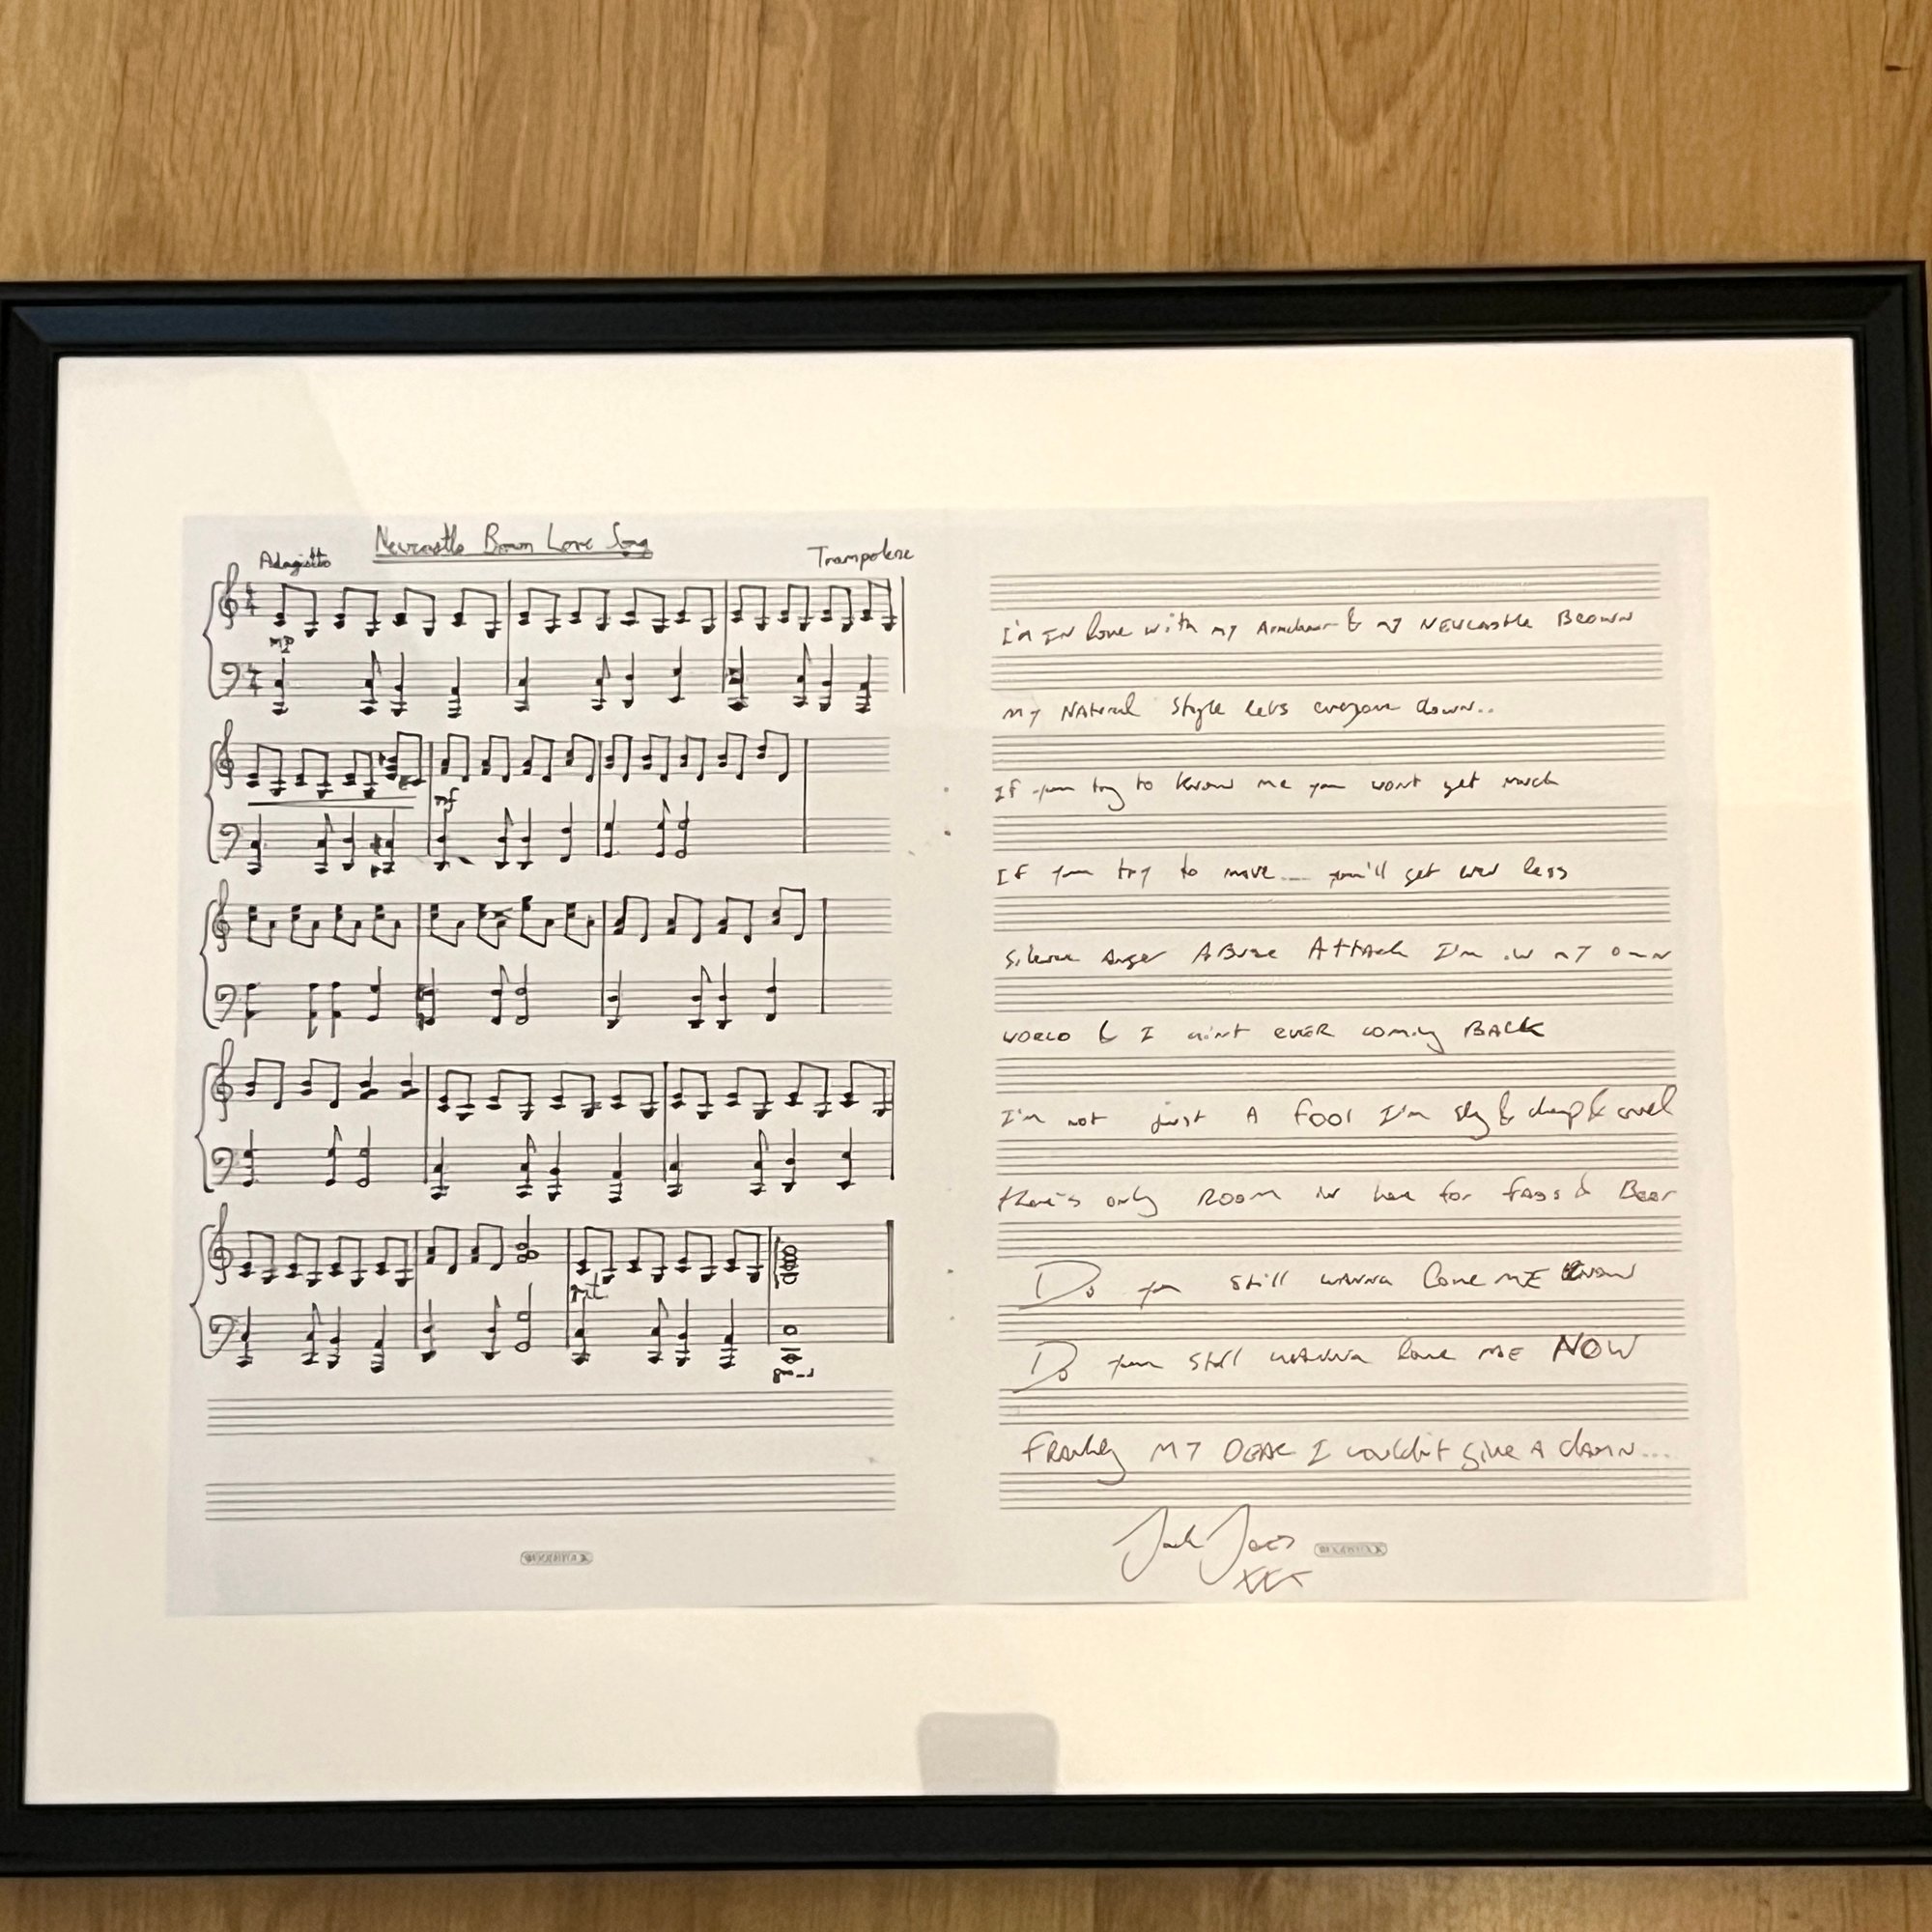 Newcastle Brown Love Song
Adagietto
Trampolene
mp
mf
I'm IN love with my Armchair & my NEWCASTLE BROWN
my NATURAL Style lets everyone down..
If you try to know me you wont get much
If you try to move.... you'll get even less
Silence Anger ABuse AttAck I'm in my own
WORLD & I ain't EVER coming BACK
I'm not just A fool I'm sly & cheap & cruel
there's only ROOM in here for fags & Beer
Do you still WANNA love ME know
Do you still WANNA love ME NOW
FRankly MY DEAR I couldn't give A damn...
Jack Jones
xxx